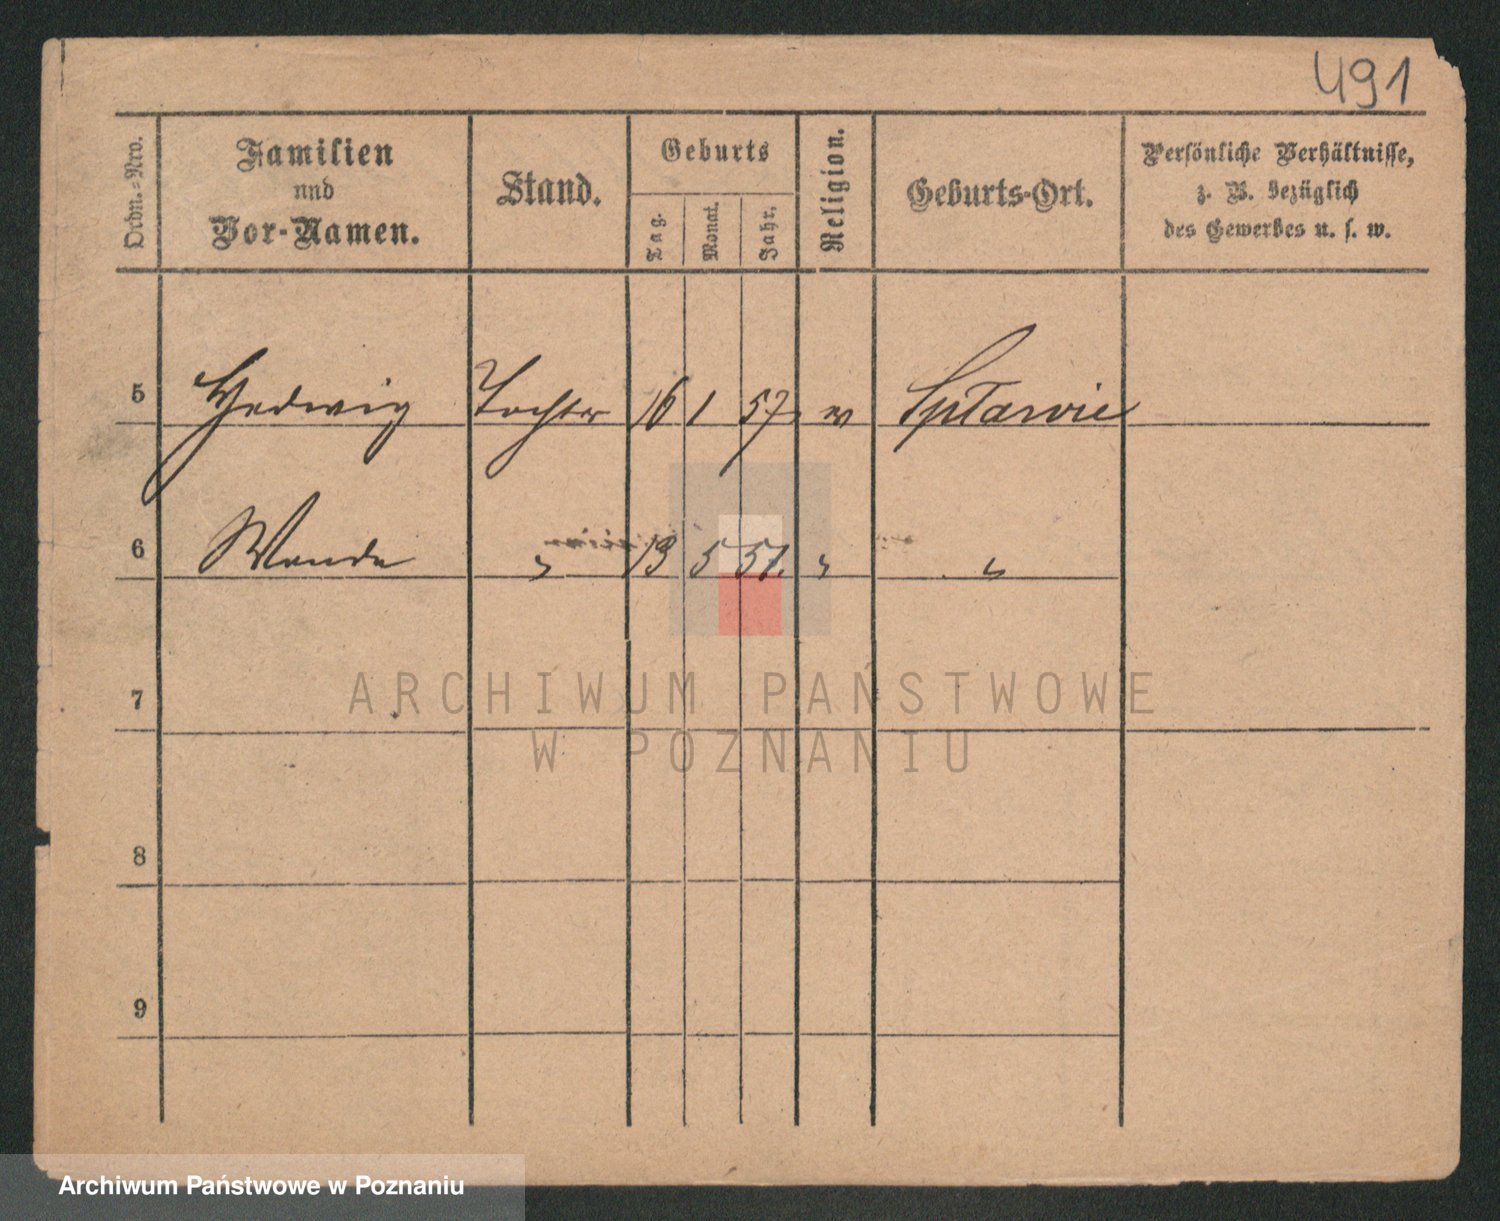 491
Ordn.-Nro.
Familien
und
Vor-Namen.
Stand.
Geburts
Tag.
Monat.
Jahr.
Religion.
Geburts-Ort.
Persönliche Verhältnisse,
z. B. bezüglich
des Gewerbes u. s. w.
5 Hedwig Tochter 16 1 57
6 Wanda " 13 5 "  "
7
8
9
ARCHIWUM PAŃSTWOWE
W POZNANIU
Archiwum Państwowe w Poznaniu